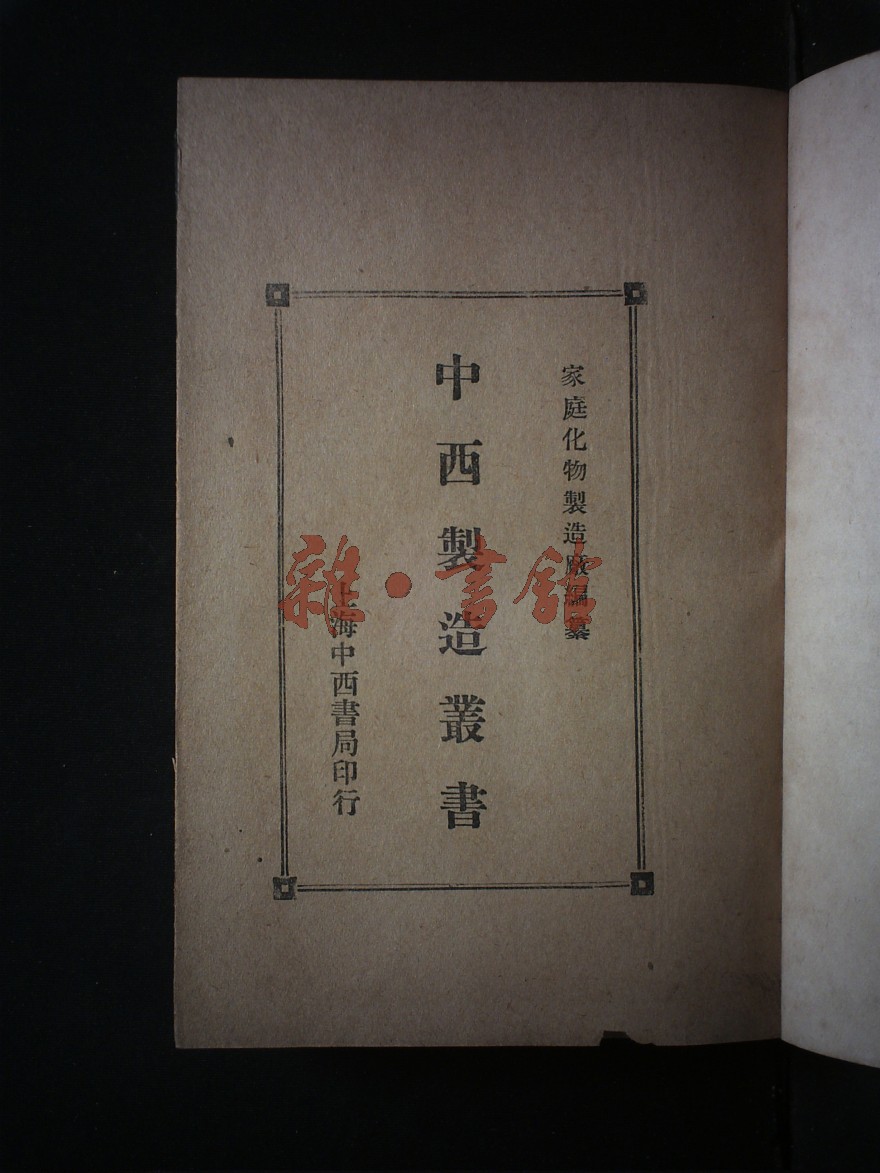 家庭化物製造廠編纂
中西製造叢書
上海中西書局印行
雜·書館